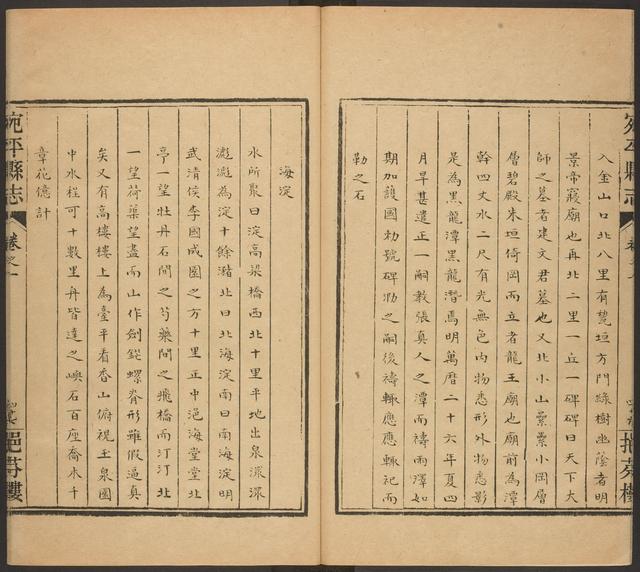 入金山口北八里有甃垣方門綠樹幽蔭者明
景帝寢廟也再北二里一丘一碑碑曰天下大
師之墓者建文君墓也又北小山纍纍小岡層
層碧殿朱垣倚岡而立者龍王廟也廟前為潭
幹四丈水二尺有光無色內物悉形外物悉影
是為黑龍潭黑龍潛焉明萬曆二十六年夏四
月旱甚遣正一嗣教張真人之潭而禱雨澤如
期加護國勅號碑勒之嗣後禱輒應應輒祀而
勒之石
海淀
水所聚曰淀高梁橋西北十里平地出泉滮滮
為淀十餘瀦北曰北海淀南曰南海淀明
武清侯李國戚園之方十里正中浥海堂堂北
亭一望牡丹石間之芍藥間之飛橋而汀汀北
一望荷蕖望盡而山作劍鋩螺脊形雖假逼真
矣又有高樓樓上為臺平看香山俯視玉泉園
中水程可十數里舟皆達之嶼石百座喬木千
章花億計
宛平縣志
卷之一
宛平縣志